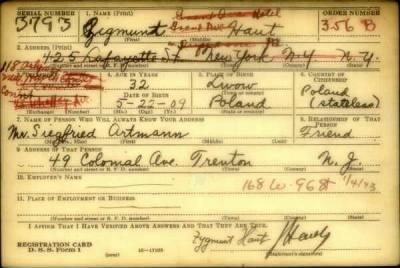 SERIAL NUMBER
1. NAME (Print)
ORDER NUMBER
3793
Zygmunt Haut
356 B
(First) (Middle) (Last)
2. ADDRESS (Print)
425 Lafayette St New York N.Y. N.Y.
(Number and street or R. F. D. number) (Town) (County) (State)
4. AGE IN YEARS
5. PLACE OF BIRTH
6. COUNTRY OF CITIZENSHIP
32
Lwow
Poland
DATE OF BIRTH
5-22-09
Poland
(stateless)
(Exchange) (Number) (Mo.) (Day) (Yr.) (State or country)
7. NAME OF PERSON WHO WILL ALWAYS KNOW YOUR ADDRESS
8. RELATIONSHIP OF THAT PERSON
Mr. Siegfried Artmann
Friend
(Mr., Mrs., Miss) (First) (Middle) (Last)
9. ADDRESS OF THAT PERSON
49 Colonial Ave. Trenton N.J.
(Number and street or R. F. D. number) (Town) (County) (State)
10. EMPLOYER'S NAME
168 W. 96 St 1/4/43
11. PLACE OF EMPLOYMENT OR BUSINESS
(Number and street or R. F. D. number) (Town) (County) (State)
I AFFIRM THAT I HAVE VERIFIED ABOVE ANSWERS AND THAT THEY ARE TRUE.
REGISTRATION CARD
D. S. S. Form 1
Zygmunt Haut